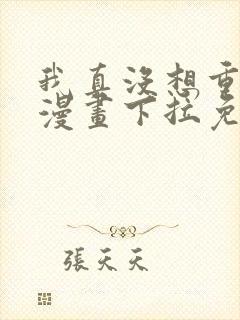 我真沒想重
漫畫下拉免
張天天